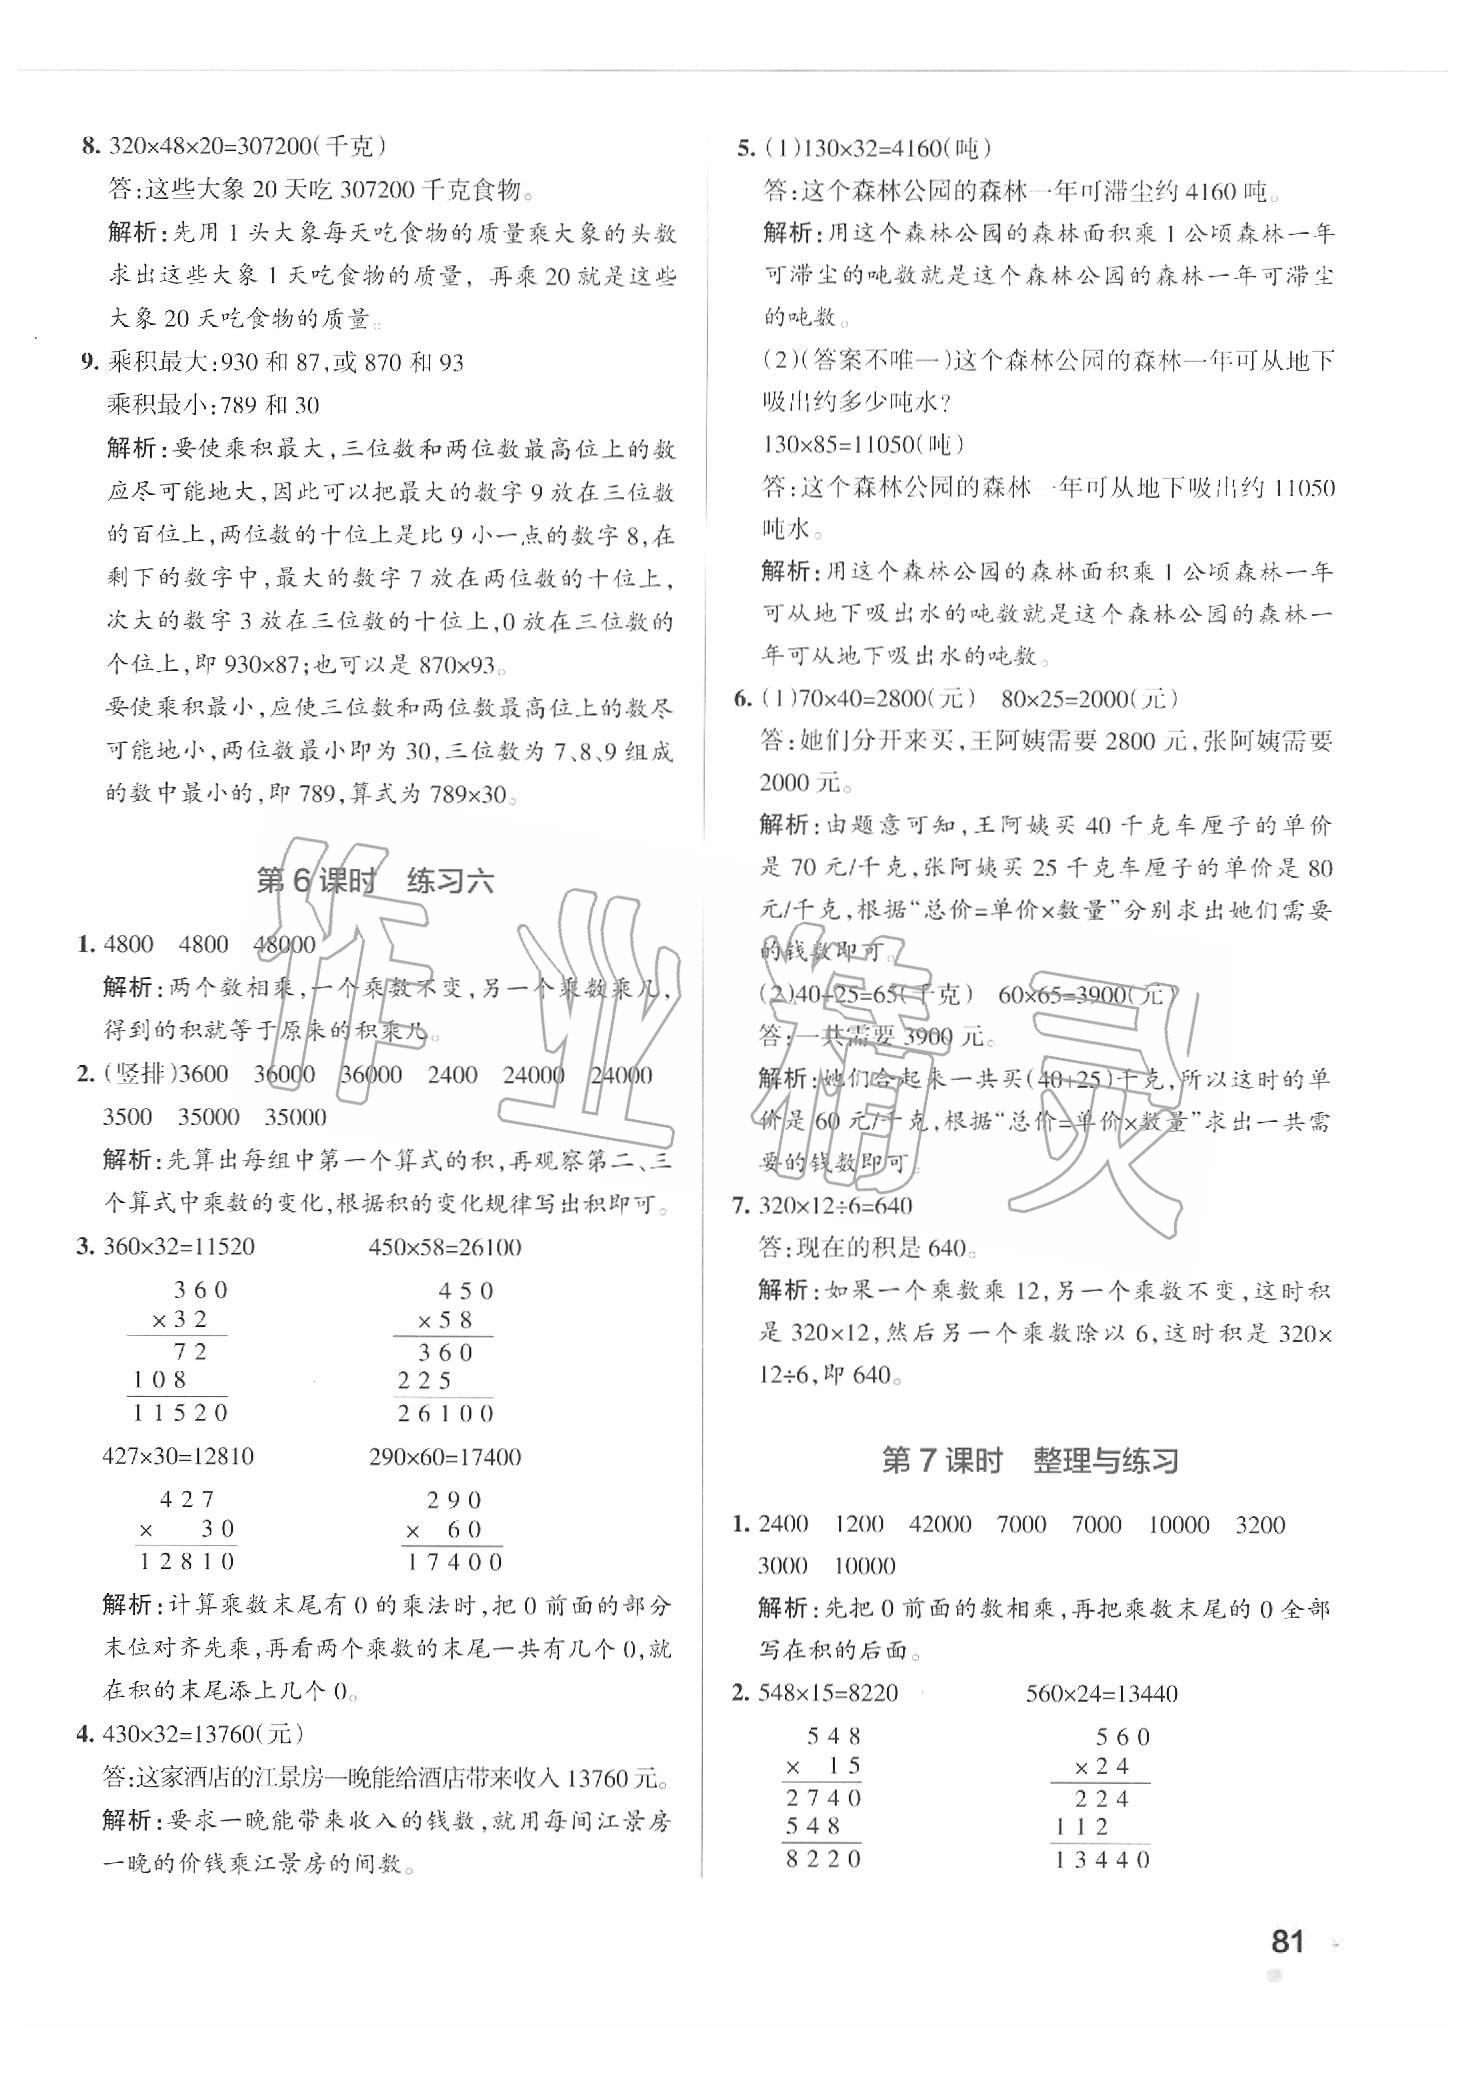 8. 320×48×20=307200(千克)
答:这些大象 20 天吃 307200 千克食物。
解析:先用 1 头大象每天吃食物的质量乘大象的头数
求出这些大象 1 天吃食物的质量，再乘 20 就是这些
大象 20 天吃食物的质量。
9. 乘积最大:930 和 87,或 870 和 93
乘积最小:789 和 30
解析:要使乘积最大,三位数和两位数最高位上的数
应尽可能地大,因此可以把最大的数字 9 放在三位数
的百位上,两位数的十位上是比 9 小一点的数字 8,在
剩下的数字中,最大的数字 7 放在两位数的十位上,
次大的数字 3 放在三位数的十位上,0 放在三位数的
个位上,即 930×87;也可以是 870×93。
要使乘积最小,应使三位数和两位数最高位上的数尽
可能地小,两位数最小即为 30,三位数为 7、8、9 组成
的数中最小的,即 789,算式为 789×30。
第 6 课时 练习六
1. 4800 4800 48000
解析:两个数相乘,一个乘数不变,另一个乘数乘几,
得到的积就等于原来的积乘几。
2. (竖排)3600 36000 36000 2400 24000 24000
3500 35000 35000
解析:先算出每组中第一个算式的积,再观察第二、三
个算式中乘数的变化,根据积的变化规律写出积即可。
3. 360×32=11520 450×58=26100
3 6 0 4 5 0
×3 2 ×5 8
7 2 3 6 0
1 0 8 2 2 5
1 1 5 2 0 2 6 1 0 0
427×30=12810 290×60=17400
4 2 7 2 9 0
× 3 0 × 6 0
1 2 8 1 0 1 7 4 0 0
解析:计算乘数末尾有 0 的乘法时,把 0 前面的部分
末位对齐先乘,再看两个乘数的末尾一共有几个 0,就
在积的末尾添上几个 0。
4. 430×32=13760(元)
答:这家酒店的江景房一晚能给酒店带来收入 13760 元。
解析:要求一晚能带来收入的钱数,就用每间江景房
一晚的价钱乘江景房的间数。
5. (1)130×32=4160(吨)
答:这个森林公园的森林一年可滞尘约 4160 吨。
解析:用这个森林公园的森林面积乘 1 公顷森林一年
可滞尘的吨数就是这个森林公园的森林一年可滞尘
的吨数。
(2)(答案不唯一)这个森林公园的森林一年可从地下
吸出约多少吨水?
130×85=11050(吨)
答:这个森林公园的森林一年可从地下吸出约 11050
吨水。
解析:用这个森林公园的森林面积乘 1 公顷森林一年
可从地下吸出水的吨数就是这个森林公园的森林一
年可从地下吸出水的吨数。
6. (1)70×40=2800(元) 80×25=2000(元)
答:她们分开来买,王阿姨需要 2800 元,张阿姨需要
2000 元。
解析:由题意可知,王阿姨买 40 千克车厘子的单价
是 70 元/千克,张阿姨买 25 千克车厘子的单价是 80
元/千克,根据“总价=单价×数量”分别求出她们需要
的钱数即可。
(2)40+25=65(千克) 60×65=3900(元)
答:一共需要 3900 元。
解析:她们合起来一共买(40+25)千克,所以这时的单
价是 60 元/千克,根据“总价=单价×数量”求出一共需
要的钱数即可。
7. 320×12÷6=640
答:现在的积是 640。
解析:如果一个乘数乘 12,另一个乘数不变,这时积
是 320×12,然后另一个乘数除以 6,这时积是 320×
12÷6,即 640。
第 7 课时 整理与练习
1. 2400 1200 42000 7000 7000 10000 3200
3000 10000
解析:先把 0 前面的数相乘,再把乘数末尾的 0 全部
写在积的后面。
2. 548×15=8220 560×24=13440
5 4 8 5 6 0
× 1 5 ×2 4
2 7 4 0 2 2 4
5 4 8 1 1 2
8 2 2 0 1 3 4 4 0
81
作业精灵